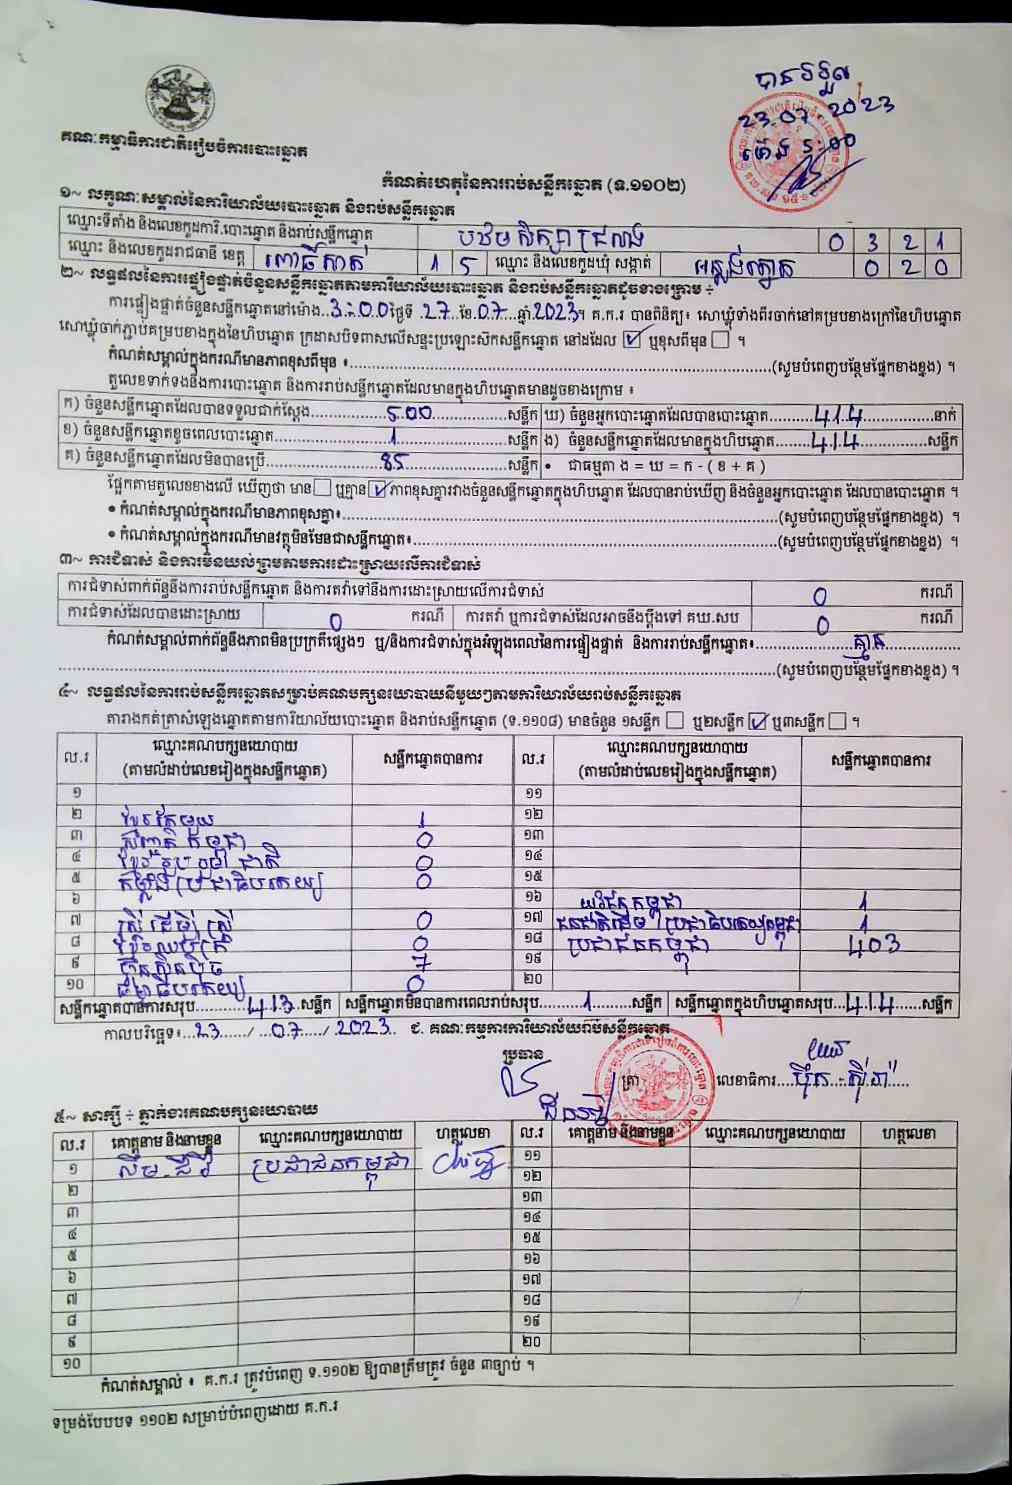 បានទទួល
23.07 2023
ម៉ោង 5:00
គណៈកម្មាធិការជាតិរៀបចំការបោះឆ្នោត
កំណត់ហេតុនៃការរាប់សន្លឹកឆ្នោត (ទ.១១០២)
១~ លក្ខណៈសម្គាល់នៃការិយាល័យបោះឆ្នោត និងរាប់សន្លឹកឆ្នោត
ឈ្មោះទីតាំង និងលេខកូដការិ.បោះឆ្នោត និងរាប់សន្លឹកឆ្នោត បឋមសិក្សា 0 3 2 1
ឈ្មោះ និងលេខកូដរាជធានី ខេត្ត ពោធិ៍សាត់ 1 5 ឈ្មោះ និងលេខកូដឃុំ សង្កាត់ អន្លង់ត្នោត 0 2 0
២~ លទ្ធផលនៃការផ្ទៀងផ្ទាត់ចំនួនសន្លឹកឆ្នោតតាមការិយាល័យបោះឆ្នោត និងរាប់សន្លឹកឆ្នោតដូចខាងក្រោម ÷
ការផ្ទៀងផ្ទាត់ចំនួនសន្លឹកឆ្នោតនៅម៉ោង 3:00 ថ្ងៃទី 27 ខែ 07 ឆ្នាំ 2023 ។ គ.ក.រ បានពិនិត្យ៖ សោឃ្លុំទាំងពីរចាក់នៅគម្របខាងក្រៅនៃហិបឆ្នោត
សោឃ្លុំចាក់ភ្ជាប់គម្របខាងក្នុងនៃហិបឆ្នោត ក្រដាសបិទពាសលើសន្ទះប្រឡោះសៀកសន្លឹកឆ្នោត នៅដដែល ☑ ឬខុសពីមុន ☐ ។
កំណត់សម្គាល់ក្នុងករណីមានភាពខុសពីមុន ៖ (សូមបំពេញបន្ថែមផ្នែកខាងខ្នង) ។
តួលេខទាក់ទងនឹងការបោះឆ្នោត និងការរាប់សន្លឹកឆ្នោតដែលមានក្នុងហិបឆ្នោតមានដូចខាងក្រោម ៖
ក) ចំនួនសន្លឹកឆ្នោតដែលបានទទួលជាក់ស្តែង 500 សន្លឹក ឃ) ចំនួនអ្នកបោះឆ្នោតដែលបានបោះឆ្នោត 414 នាក់
ខ) ចំនួនសន្លឹកឆ្នោតខូចពេលបោះឆ្នោត 1 សន្លឹក ង) ចំនួនសន្លឹកឆ្នោតដែលមានក្នុងហិបឆ្នោត 414 សន្លឹក
គ) ចំនួនសន្លឹកឆ្នោតដែលមិនបានប្រើ 85 សន្លឹក • ជាធម្មតា ង = ឃ = ក - ( ខ + គ )
ផ្អែកតាមតួលេខខាងលើ ឃើញថា មាន ☐ ឬគ្មាន ☑ ភាពខុសគ្នារវាងចំនួនសន្លឹកឆ្នោតក្នុងហិបឆ្នោត ដែលបានរាប់ឃើញ និងចំនួនអ្នកបោះឆ្នោត ដែលបានបោះឆ្នោត ។
• កំណត់សម្គាល់ក្នុងករណីមានភាពខុសគ្នា៖ (សូមបំពេញបន្ថែមផ្នែកខាងខ្នង) ។
• កំណត់សម្គាល់ក្នុងករណីមានវត្ថុមិនមែនជាសន្លឹកឆ្នោត៖ (សូមបំពេញបន្ថែមផ្នែកខាងខ្នង) ។
៣~ ការជំទាស់ និងការមិនយល់ព្រមតាមការដោះស្រាយលើការជំទាស់
ការជំទាស់ពាក់ព័ន្ធនឹងការរាប់សន្លឹកឆ្នោត និងការតវ៉ាទៅនឹងការដោះស្រាយលើការជំទាស់ 0 ករណី
ការជំទាស់ដែលបានដោះស្រាយ 0 ករណី ការតវ៉ា ឬការជំទាស់ដែលអាចនឹងប្តឹងទៅ គឃ.សប 0 ករណី
កំណត់សម្គាល់ពាក់ព័ន្ធនឹងភាពមិនប្រក្រតីផ្សេងៗ ឬ/និងការជំទាស់ក្នុងអំឡុងពេលនៃការផ្ទៀងផ្ទាត់ និងការរាប់សន្លឹកឆ្នោត៖ គ្មាន
(សូមបំពេញបន្ថែមផ្នែកខាងខ្នង) ។
៤~ លទ្ធផលនៃការរាប់សន្លឹកឆ្នោតសម្រាប់គណបក្សនយោបាយនីមួយៗតាមការិយាល័យរាប់សន្លឹកឆ្នោត
តារាងកត់ត្រាសំឡេងឆ្នោតតាមការិយាល័យបោះឆ្នោត និងរាប់សន្លឹកឆ្នោត (ទ.១១០៨) មានចំនួន ១សន្លឹក ☐ ឬ២សន្លឹក ☑ ឬ៣សន្លឹក ☐ ។
ល.រ ឈ្មោះគណបក្សនយោបាយ (តាមលំដាប់លេខរៀងក្នុងសន្លឹកឆ្នោត) សន្លឹកឆ្នោតបានការ ល.រ ឈ្មោះគណបក្សនយោបាយ (តាមលំដាប់លេខរៀងក្នុងសន្លឹកឆ្នោត) សន្លឹកឆ្នោតបានការ
១ ១១
២ ខ្មែរតែមួយ 1 ១២
៣ សញ្ជាតិកម្ពុជា 0 ១៣
៤ ខ្មែររួបរួមជាតិ 0 ១៤
៥ កម្លាំងប្រជាធិបតេយ្យ 0 ១៥
៦ ១៦ យុវជនកម្ពុជា 1
៧ ស្ត្រីដើម្បីស្ត្រី 0 ១៧ ជនជាតិដើមប្រជាធិបតេយ្យកម្ពុជា 1
៨ ខ្មែរឈប់ក្រ 0 ១៨ ប្រជាជនកម្ពុជា 403
៩ ហ៊្វុនស៊ិនប៉ិច 7 ១៩
១០ ធម្មាធិបតេយ្យ 0 ២០
សន្លឹកឆ្នោតបានការសរុប 413 សន្លឹក សន្លឹកឆ្នោតមិនបានការពេលរាប់សរុប 1 សន្លឹក សន្លឹកឆ្នោតក្នុងហិបឆ្នោតសរុប 414 សន្លឹក
កាលបរិច្ឆេទ៖ 23 / 07 / 2023 ជ. គណៈកម្មការការិយាល័យរាប់សន្លឹកឆ្នោត
ប្រធាន ត្រា លេខាធិការ
៥~ សាក្សី ÷ ភ្នាក់ងារគណបក្សនយោបាយ
ល.រ គោត្តនាម និងនាមខ្លួន ឈ្មោះគណបក្សនយោបាយ ហត្ថលេខា ល.រ គោត្តនាម និងនាមខ្លួន ឈ្មោះគណបក្សនយោបាយ ហត្ថលេខា
១ ប្រជាជនកម្ពុជា ១១
២ ១២
៣ ១៣
៤ ១៤
៥ ១៥
៦ ១៦
៧ ១៧
៨ ១៨
៩ ១៩
១០ ២០
កំណត់សម្គាល់ ៖ គ.ក.រ ត្រូវបំពេញ ទ.១១០២ ឱ្យបានត្រឹមត្រូវ ចំនួន ៣ច្បាប់ ។
ទម្រង់បែបបទ ១១០២ សម្រាប់បំពេញដោយ គ.ក.រ